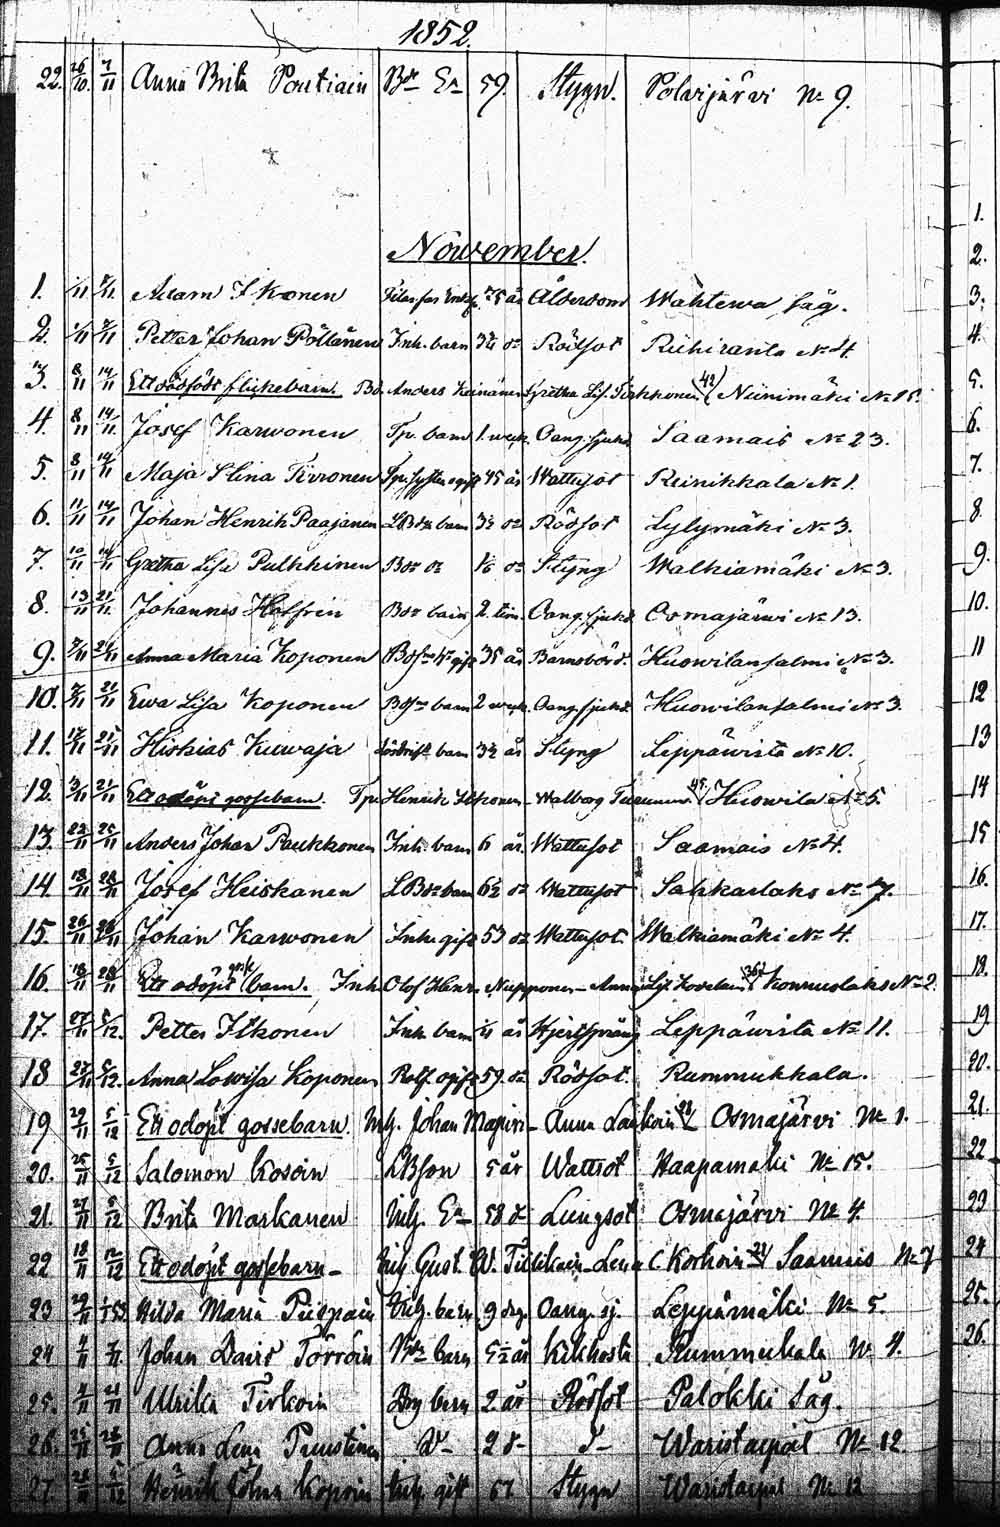 1852.
22. 26/10 7/11 Anna Brita Pontiain Bdr Ea 59. Stygn. Polvijärvi No 9.
November.
1. 1/11 7/11 Adam Ikonen 75 år Ålderdom Wahtewa säg.
2. 1/11 Petter Johan Pöllänen Inh. barn 3/4 do Rödsot Riihiranta No 4
3. 8/11 14/11 Ett dödfödt flickebarn. Bd. Anders Keinänen Gretha Lis. 42 Niinimäki No 15.
4. 8/11 14/11 Josef Karwonen Tp. barn 1. weck. Oang. sjukd. Saamais No 23.
5. 8/11 14/11 Maja Stina Tirronen 45 år Wattusot Reinikkala No 1.
6. 11/11 14/11 Johan Henrik Paajanen LBdr barn 3/4 do Rödsot Lylymäki No 3.
7. 10/11 14/11 Gretha Lisa Pulkkinen Bdr do 1/6 do Styng Walkiamäki No 3.
8. 13/11 21/11 Johannes Hoffrin Bdr barn 2. tim. Oang. sjukd. Osmajärwi No 13.
9. 7/11 21/11 Anna Maria Koponen 35 år Barnsbörd. Huowilansalmi No 3.
10. 7/11 21/11 Ewa Lisa Koponen Bdr barn 2 weck. Oang. sjukd. Huowilansalmi No 3.
11. 21/11 Hiskias Kuwaja barn 3/4 år Styng Leppäwirta No 10.
12. 3/11 21/11 Ett odöpt gossebarn. Tp. Henrik Itkonen - Walborg Turunen 45. Huowila No 5.
13. 22/11 25/11 Anders Johan Paukkonen Inh. barn 6 år. Wattusot Saamais No 4.
14 18/11 28/11 Josef Heiskanen LBdr barn 6 1/2 do Wattusot Sahkarlaks No 7.
15. 26/11 28/11 Johan Karwonen Inh. gift 53 do Wattusot. Walkiamäki No 4.
16. 18/11 28/11 Ett odöpt gosse barn. Inh. Olof Henr. Nupponen - Anna 36 Konnuslaks No 2.
17. 27/11 5/12. Petter Itkonen Inh. barn år Hjertspräng Leppäwirta No 11.
18 27/11 5/12. Anna Lowisa Koponen 59. do Rödsot. Rummukkala.
19 29/11 5/12 Ett odöpt gossebarn. Inh. Johan - Anna Osmajärvi No 1.
20. 25/11 5/12 Salomon Kosoin LBson 5 år Wattsot Haapamäki No 15.
21. 27/11 5/12 Brita Markanen Inh. Ea 58 do Lungsot Osmajärvi No 4.
22 18/11 12/12 Ett odöpt gossebarn - Inh Gust. W. - Lena C. Korhoin 21 Saamais No 7
23 29/11 Hilda Maria Piispain Inh. barn 9 dag. Oang. sj. Leppämäki No 5.
24 Johan David Törröin Bdr barn 5 1/2 år Kikhosta Rummukala No 4.
25. 21/11 Ulrika Tirkoin barn 2 år Rödsot Palokki Säg.
26. 25/11 28/11 Anna Lena D- 2 d- D- Waristaipal No 12
27. Henrik Johan Kopoin Inh. gift 57 Stygn Waristaipal No 12
1.
2.
3.
4.
5.
6.
7.
8.
9.
10.
11
12
13
14
15
16.
17.
18.
19.
20.
21.
22
23
24
25.
26.